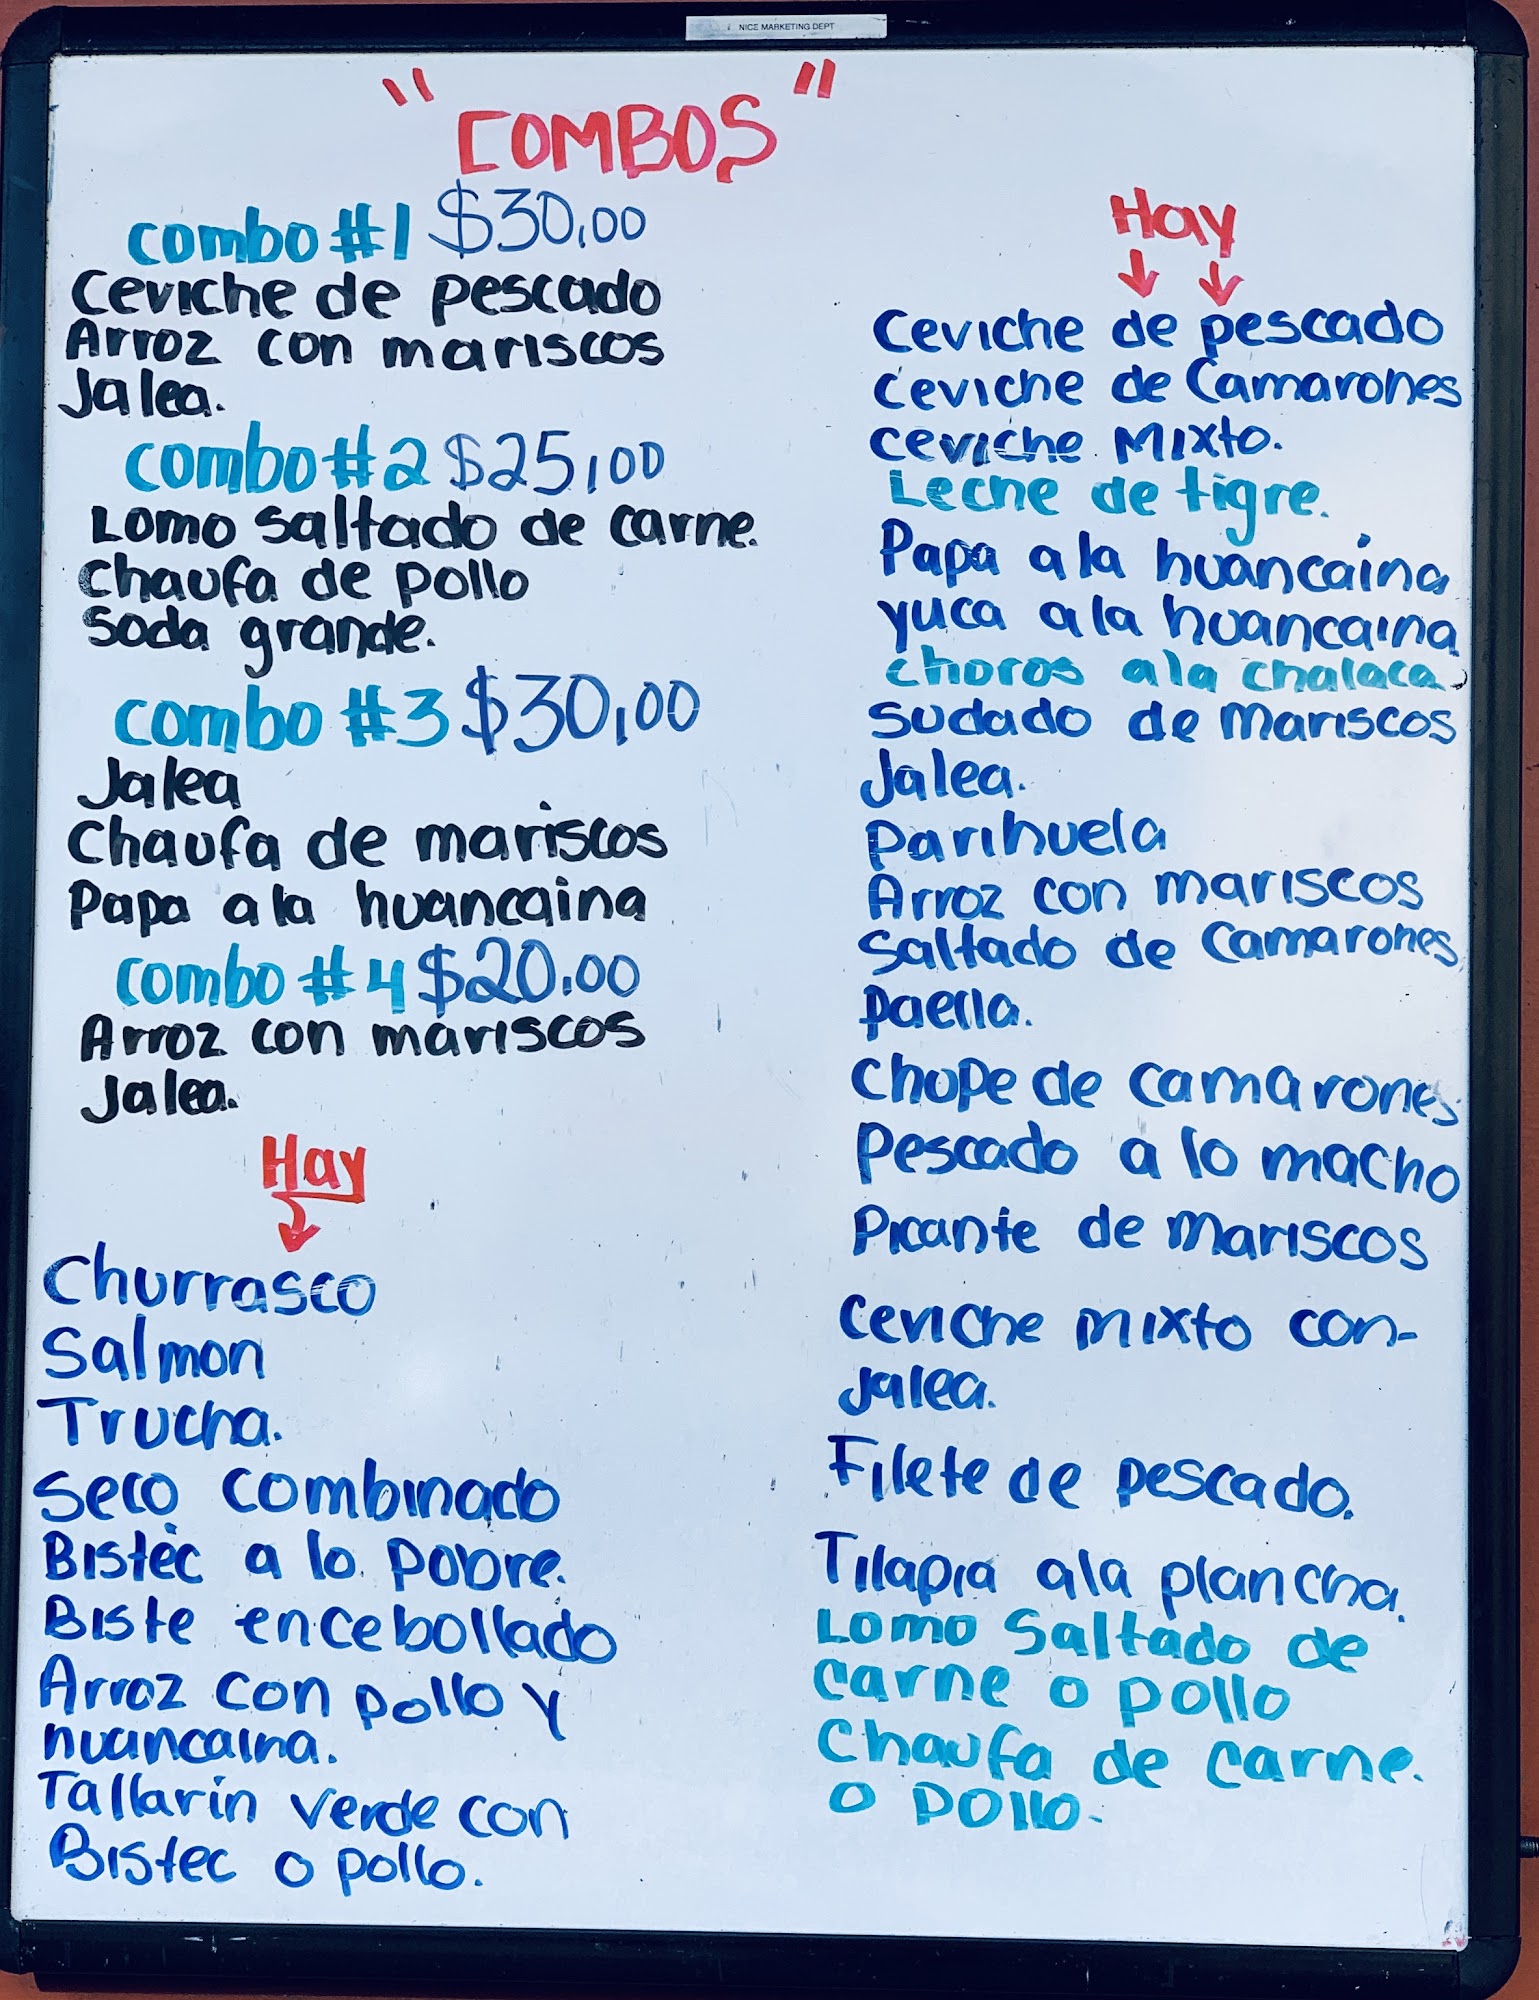 NICE MARKETING DEPT
"COMBOS"
combo #1 $30.00
Ceviche de pescado
Arroz con mariscos
Jalea.
combo #2 $25,00
Lomo saltado de carne.
Chaufa de pollo
Soda grande.
combo #3 $30,00
Jalea
Chaufa de mariscos
Papa a la huancaina
combo #4 $20.00
Arroz con mariscos
Jalea.
Hay
Churrasco
Salmon
Trucha.
Seco combinado
Bistec a lo pobre.
Biste encebollado
Arroz con pollo y
huancaina.
Tallarin verde con
Bistec o pollo.
Hay
Ceviche de pescado
Ceviche de Camarones
Ceviche Mixto.
Leche de tigre.
Papa a la huancaina
yuca a la huancaina
choros a la chalaca
Sudado de mariscos
Jalea.
Parihuela
Arroz con mariscos
Saltado de Camarones
Paella.
Chupe de camarones
Pescado a lo macho
Picante de mariscos
Ceviche mixto con-
Jalea.
Filete de pescado.
Tilapia a la plancha.
Lomo Saltado de
carne o pollo
Chaufa de carne.
o pollo.